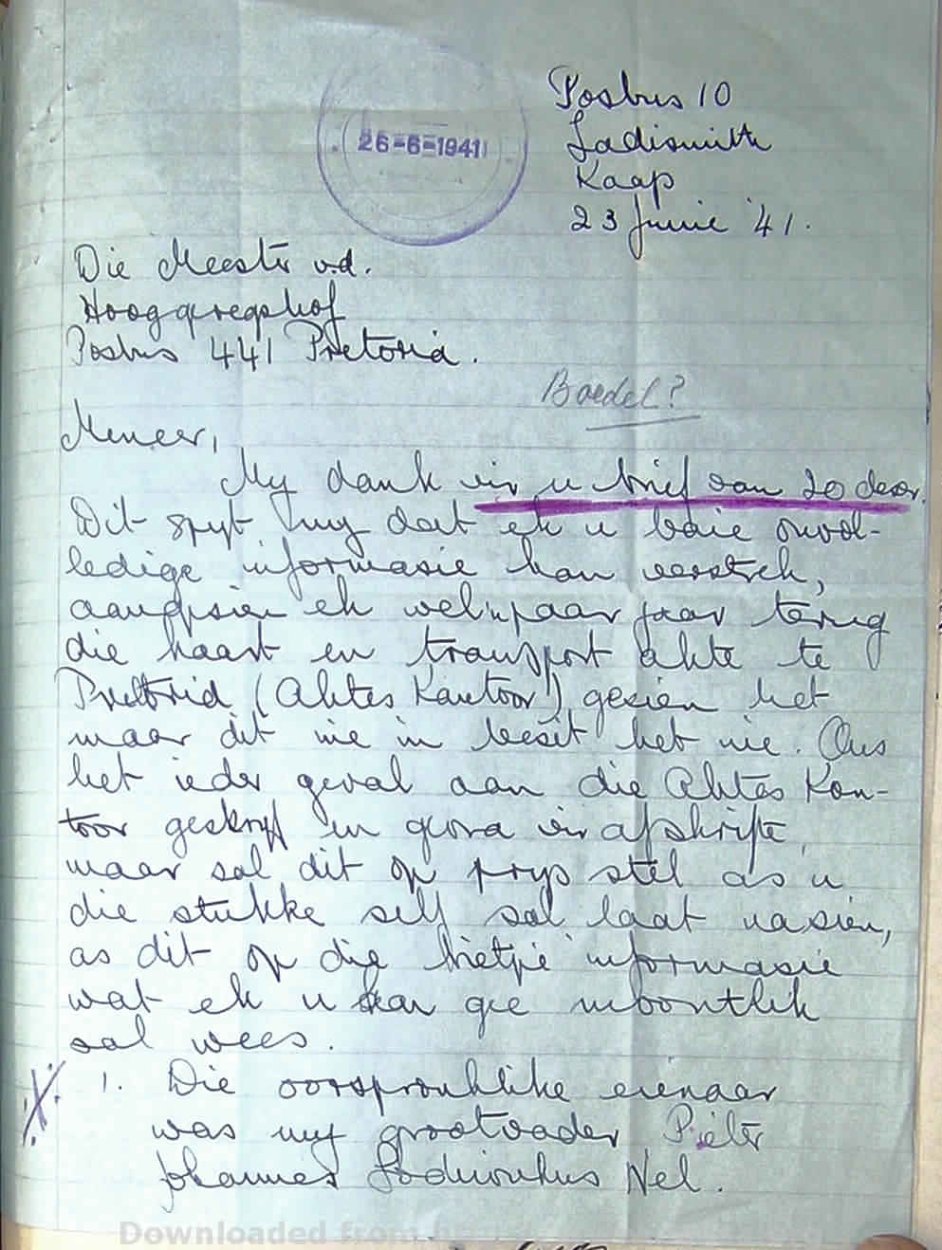 Posbus 10
Ladismith
Kaap
23 Junie '41.
26-6-1941
Die Meester v.d.
Hooggeregshof
Posbus 441 Pretoria.
Boedel?
Meneer,
My dank vir u brief van 20 deser.
Dit spyt my dat ek u baie onvol-
ledige informasie kan verstrek,
aangesien ek wel 'n paar jaar terug
die kaart en transport akte te
Pretoria (Aktes Kantoor) gesien het
maar dit nie in besit het nie. Ons
het ieder geval aan die Aktes Kan-
toor geskryf en gevra vir afskrifte,
maar sal dit op prys stel as u
die stukke self sal laat nasien,
as dit op die bietjie informasie
wat ek u kan gee moontlik
sal wees.
1. Die oorspronklike eienaar
was my grootvader Pieter
Johannes Lodewikus Nel.
Downloaded from